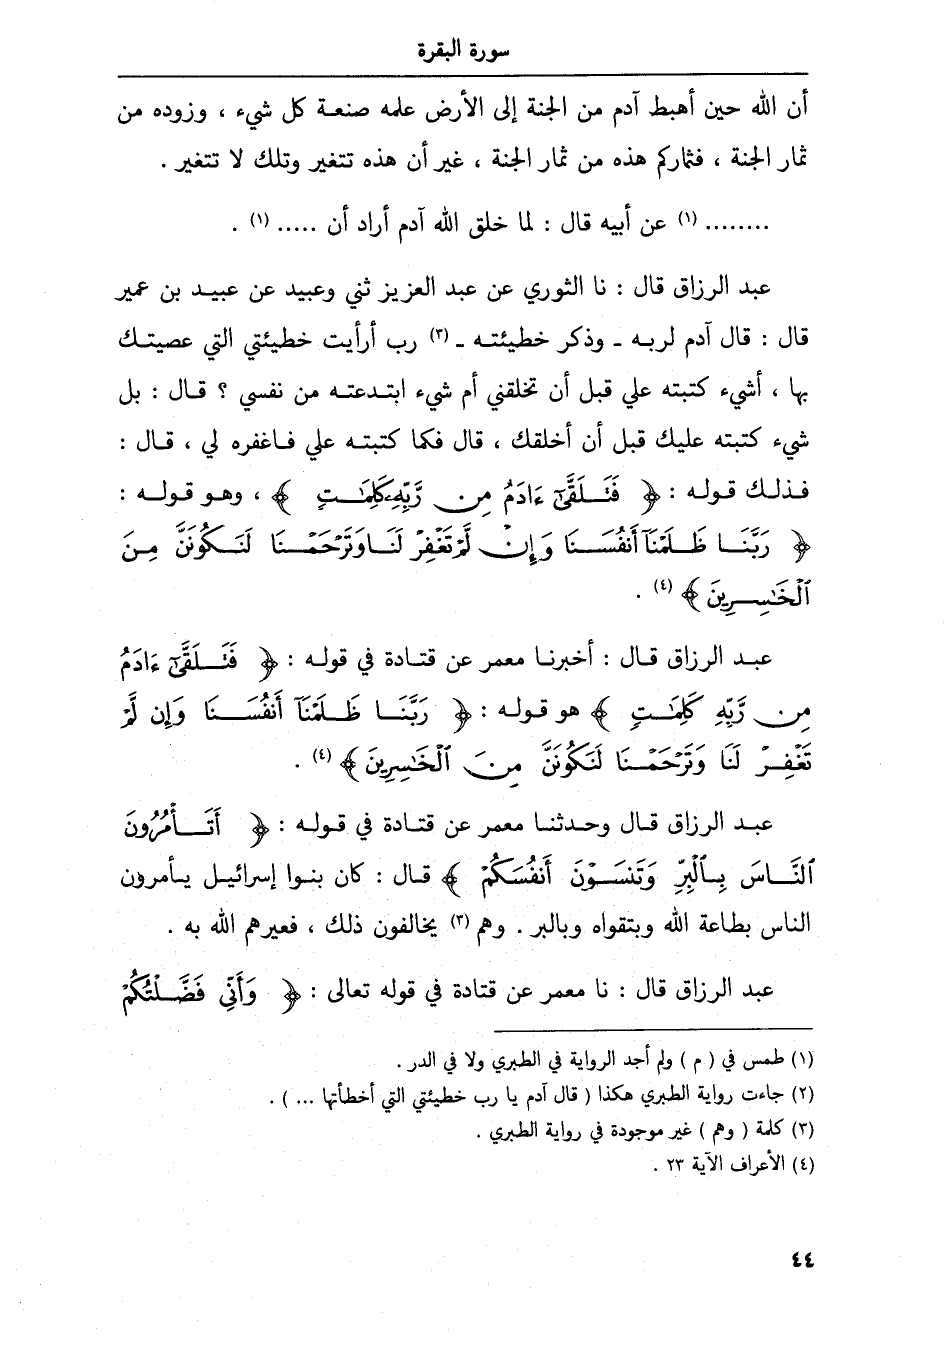 سورة البقرة
أن الله حين أهبط آدم من الجنة إلى الأرض علمه صنعة كل شيء ، وزوده من
ثمار الجنة ، فثماركم هذه من ثمار الجنة ، غير أن هذه تتغير وتلك لا تتغير .
........ (١) عن أبيه قال : لما خلق الله آدم أراد أن ..... (١) .
عبد الرزاق قال : نا الثوري عن عبد العزيز ثني وعبيد عن عبيد بن عمير
قال : قال آدم لربه ـ وذكر خطيئته ـ (٢) رب أرأيت خطيئتي التي عصيتك
بها ، أشيء كتبته علي قبل أن تخلقني أم شيء ابتدعته من نفسي ؟ قال : بل
شيء كتبته عليك قبل أن أخلقك ، قال فكما كتبته علي فاغفره لي ، قال :
فذلك قوله : ﴿ فَتَلَقَّىٰٓ ءَادَمُ مِن رَّبِّهِۦ كَلِمَٰتٍ ﴾ ، وهو قوله :
﴿ رَبَّنَا ظَلَمْنَآ أَنفُسَنَا وَإِن لَّمْ تَغْفِرْ لَنَا وَتَرْحَمْنَا لَنَكُونَنَّ مِنَ
ٱلْخَٰسِرِينَ ﴾ (٤) .
عبد الرزاق قال : أخبرنا معمر عن قتادة في قوله : ﴿ فَتَلَقَّىٰٓ ءَادَمُ
مِن رَّبِّهِ كَلِمَٰتٍ ﴾ هو قوله : ﴿ رَبَّنَا ظَلَمْنَآ أَنفُسَنَا وَإِن لَّمْ
تَغْفِرْ لَنَا وَتَرْحَمْنَا لَنَكُونَنَّ مِنَ ٱلْخَٰسِرِينَ ﴾ (٤) .
عبد الرزاق قال وحدثنا معمر عن قتادة في قوله : ﴿ أَتَأْمُرُونَ
ٱلنَّاسَ بِٱلْبِرِّ وَتَنسَوْنَ أَنفُسَكُمْ ﴾ قال : كان بنوا إسرائيل يأمرون
الناس بطاعة الله وبتقواه وبالبر . وهم (٣) يخالفون ذلك ، فعيرهم الله به .
عبد الرزاق قال : نا معمر عن قتادة في قوله تعالى : ﴿ وَأَنِّي فَضَّلْتُكُمْ
(١) طمس في ( م ) ولم أجد الرواية في الطبري ولا في الدر .
(٢) جاءت رواية الطبري هكذا ( قال آدم يا رب خطيئتي التي أخطأتها ... ) .
(٣) كلمة ( وهم ) غير موجودة في رواية الطبري .
(٤) الأعراف الآية ٢٣ .
٤٤